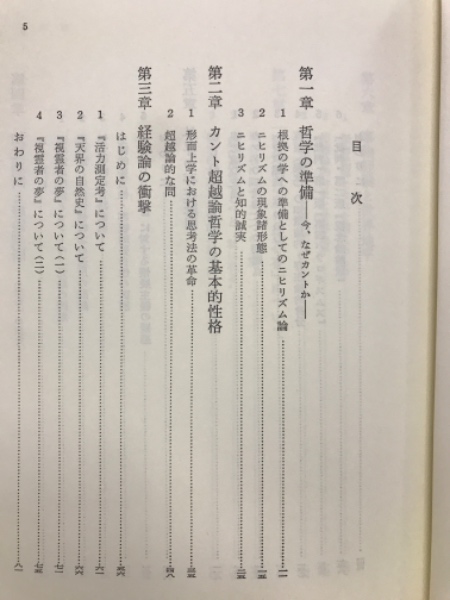 目次
第一章 哲学の準備――今、なぜカントか――
1 根拠の学への準備としてのニヒリズム論……一一
2 ニヒリズムの現象諸形態……一五
3 ニヒリズムと知的誠実……二五
第二章 カント超越論哲学の基本的性格
1 形而上学における思考法の革命……三五
2 超越論的な問……四八
第三章 経験論の衝撃
はじめに……五六
1 『活力測定考』について……六一
2 『天界の自然史』について……六六
3 『視霊者の夢』について(一)……七一
4 『視霊者の夢』について(二)……七五
おわりに……八一
5